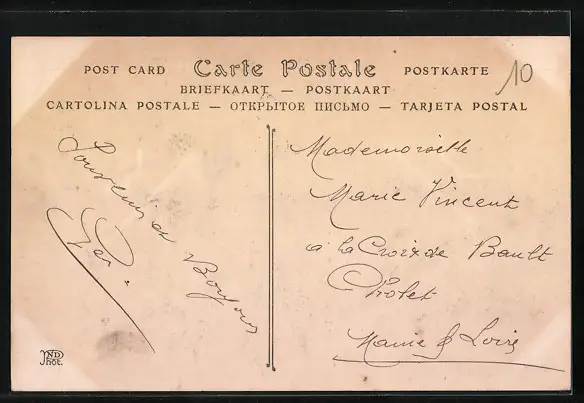 POST CARD Carte Postale POSTKARTE
BRIEFKAART — POSTKAART
CARTOLINA POSTALE — ОТКРЫТОЕ ПИСЬМО — TARJETA POSTAL
10
Souvenir et Bonjour
Mademoiselle
Marie Vincent
a la Croix de Bault
Cholet
Maine & Loire
ND
Phot.